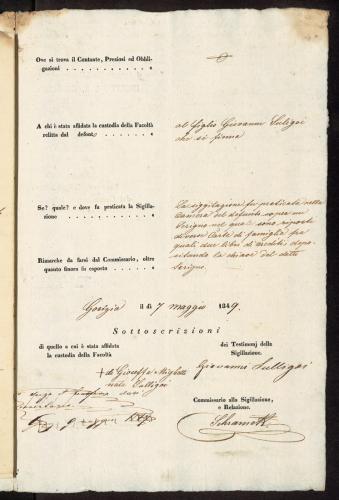 Ove si trova il Contante, Preziosi ed Obbligazioni
A chi è stata affidata la custodia della Facoltà relitta dal defonto
al figlio Giovanni Sulligoi
che si firma
Se? quale? e dove fu praticata la Sigillazione
La siggilazione fu praticata nella
Camera del defunto sopra un
Scrigno nel qual sono riposte
diverse Carte di famiglia fra
quali due libri di crediti depositandu la chiave del detto
Scrigno.
Rimarche da farsi dal Commissario, oltre quanto finora fu esposto
Gorizia il dì 7 maggio 1849.
Sottoscrizioni
di quello a cui è stata affidata
la custodia della Facoltà
dei Testimonj della
Sigillazione.
+ di Giuseppe
Sulligoi
Giovanni Sulligoi
Commissario alla Sigillazione,
e Relazione.